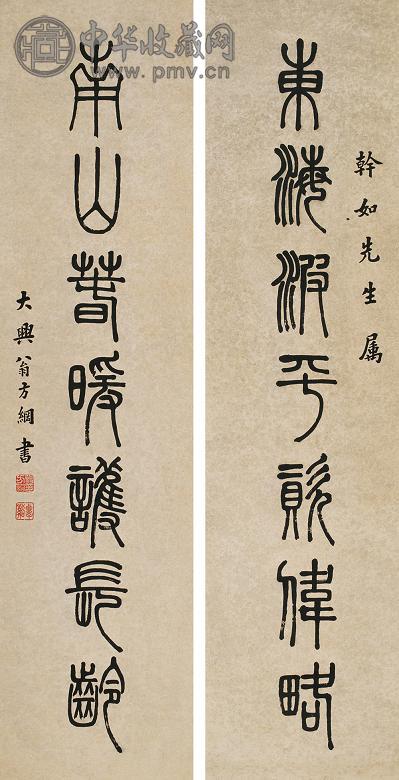 中华收藏网
www.pmv.cn
幹如先生属
東海波平偉略
南山萅暖護長齡
大興翁方綱書